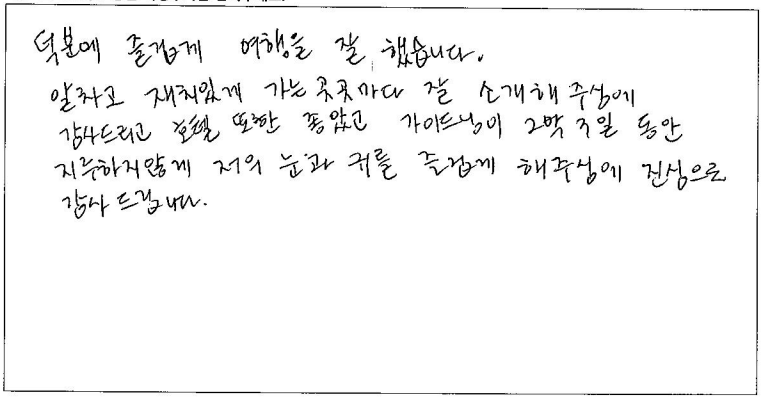 덕분에 즐겁게 여행을 잘 했습니다.
알차고 재치있게 가는 곳곳마다 잘 소개해 주심에
감사드리고 호텔 또한 좋았고 가이드님이 2박 3일 동안
지루하지않게 저의 눈과 귀를 즐겁게 해주심에 진심으로
감사 드립니다.